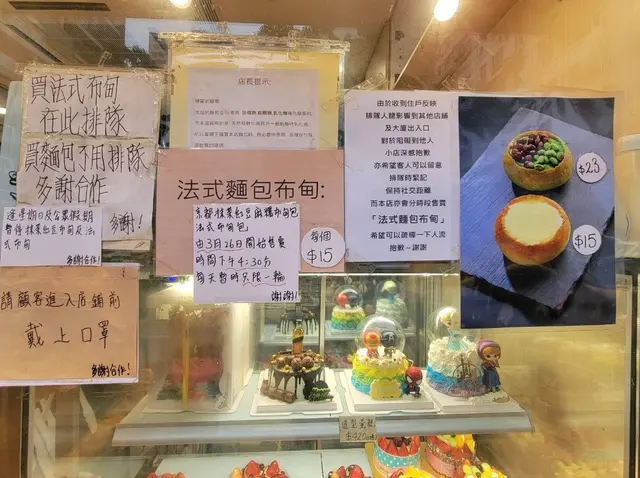 買法式布甸
在此排隊
買麵包不用排隊
多謝合作
多謝!
逢星期日及公眾假期
暫停抹茶紅豆布甸及法
式布甸
多謝合作!
請顧客進入店鋪前
戴上口罩
多謝合作!
店長提示:
法式麵包布甸:
每個
$15
京都抹茶紅豆麻糬布甸包
法式布甸包
由3月26日開始售賣
時間下午4:30分
每天暫時只限一輪
謝謝!
由於收到住戶反映
排隊人龍影響到其他店鋪
及大廈出入口
對於阻礙到他人
小店深感抱歉
亦希望客人可以留意
排隊時緊記
保持社交距離
而本店亦會分時段售賣
「法式麵包布甸」
希望可以疏導一下人流
抱歉~謝謝
$23
$15
造型蛋糕
$420